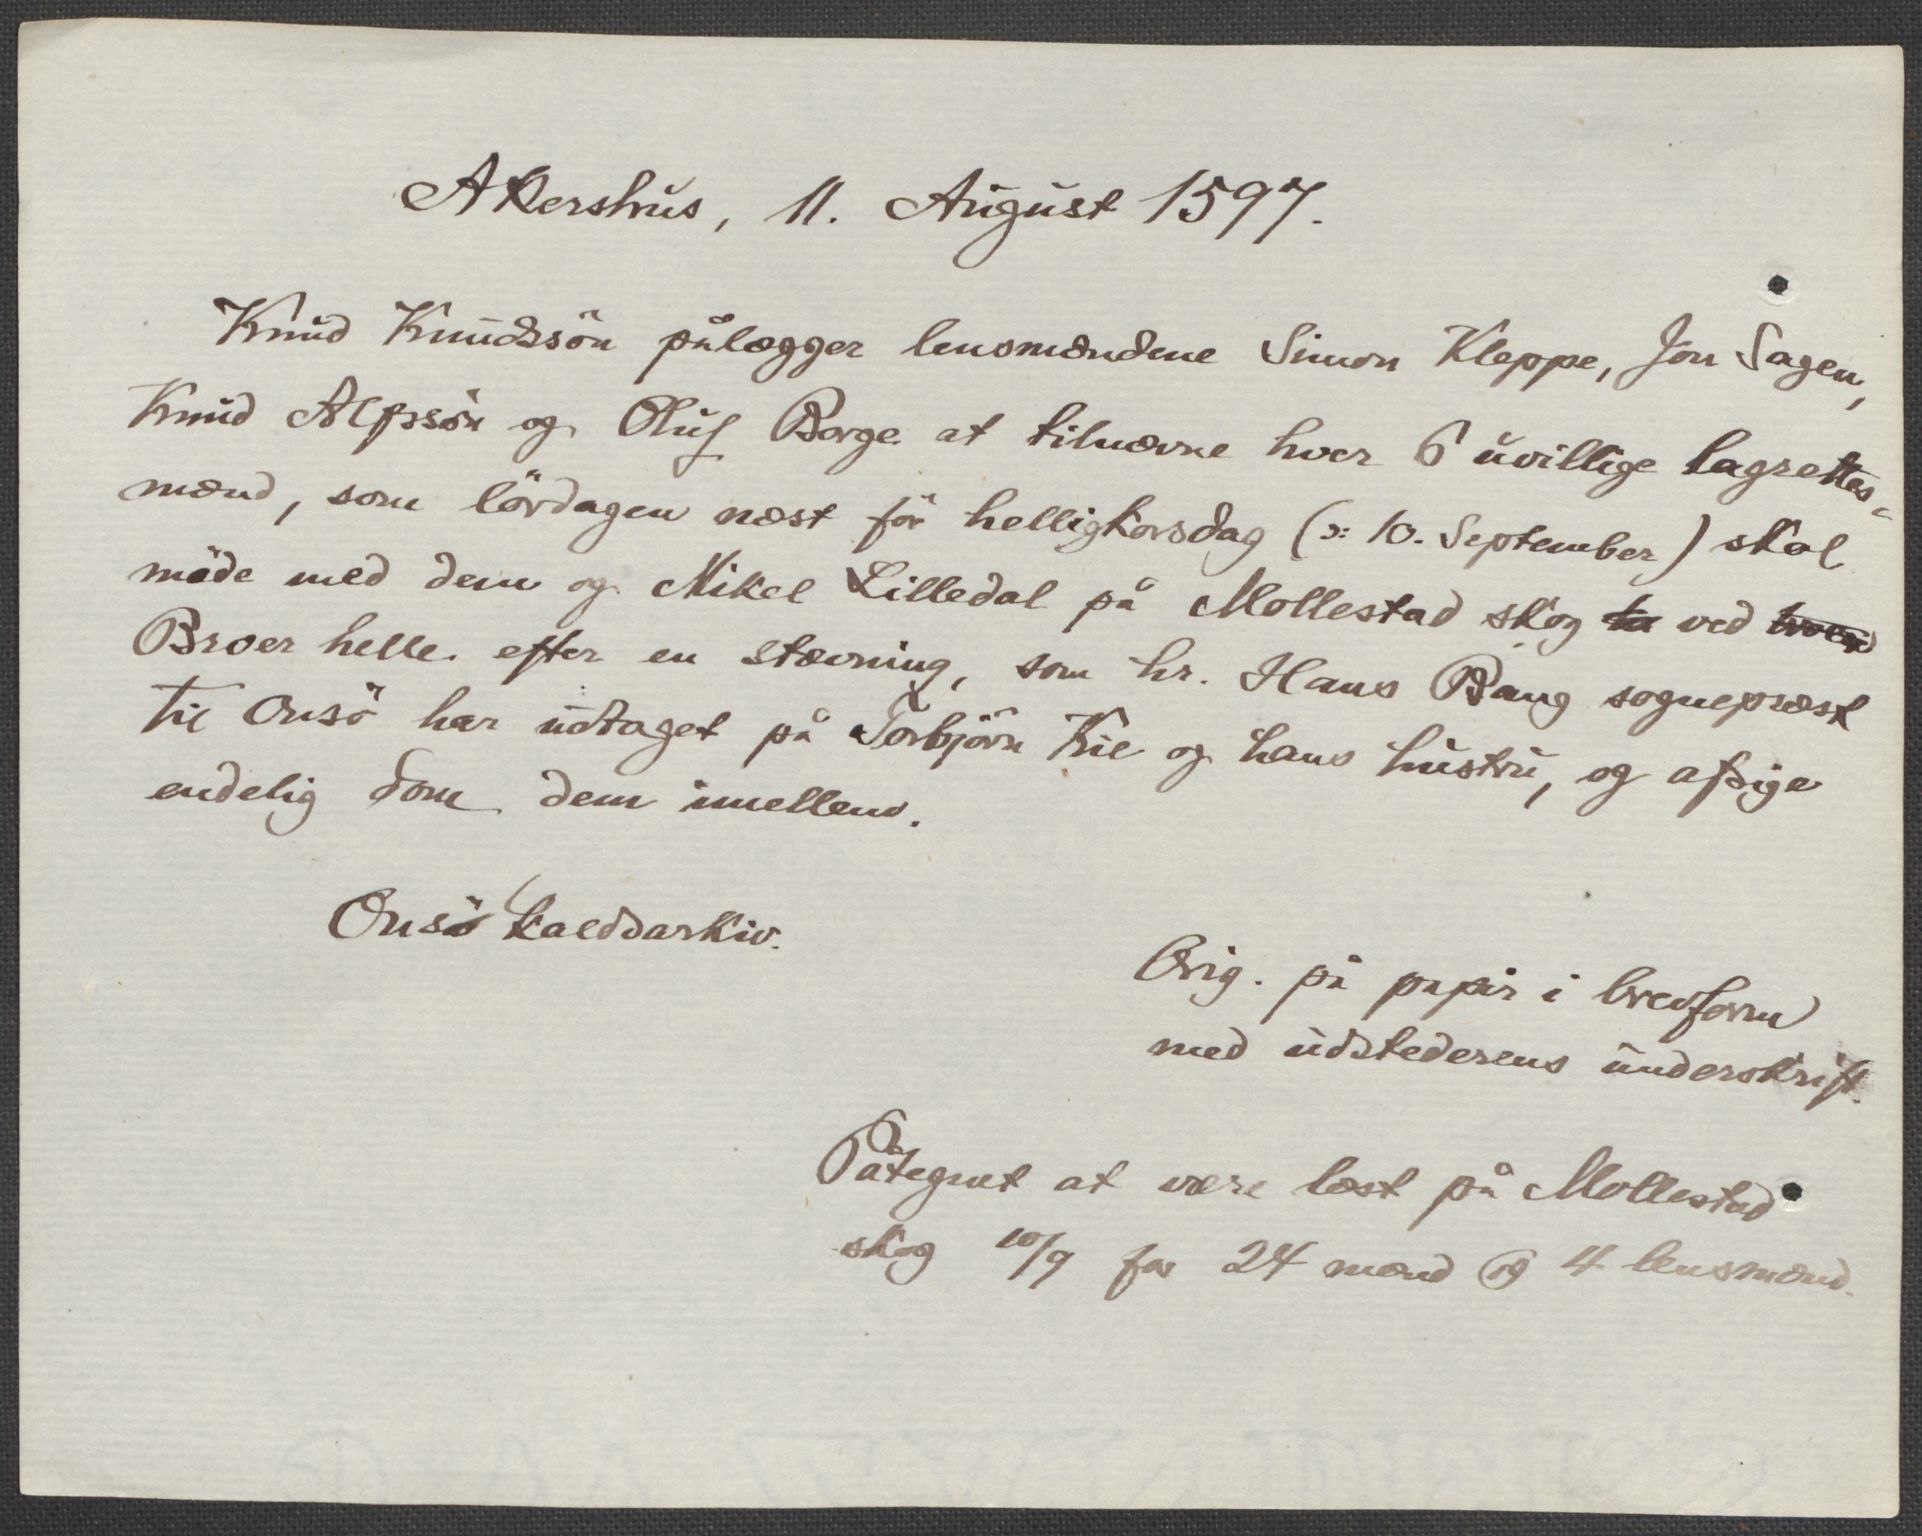 Akershus, 11. August 1597.
Knud Knudssön pålægger lensmændene Simon Kleppe, Jon Sagen,
Knud Alfssön og Oluf Borge at tilnævne hver 6 uvillige lagrettes-
mænd, som lördagen næst för helligkorsdag (ɔ: 10. September) skal
möde med dem og Mikel Lilledal på Mollestad skog ved
Broer helle efter en stævning, som hr. Hans Bang sogneprest
til Onsö har udtaget på Torbjörn Kie og hans hustru, og afsige
endelig dom dem imellem.
Onsö kaldsarkiv.
Orig. på papir i brevform
med udstederens underskrift.
Påtegnet at være læst på Mollestad
skog 10/9 for 24 mænd og 4 lensmænd.